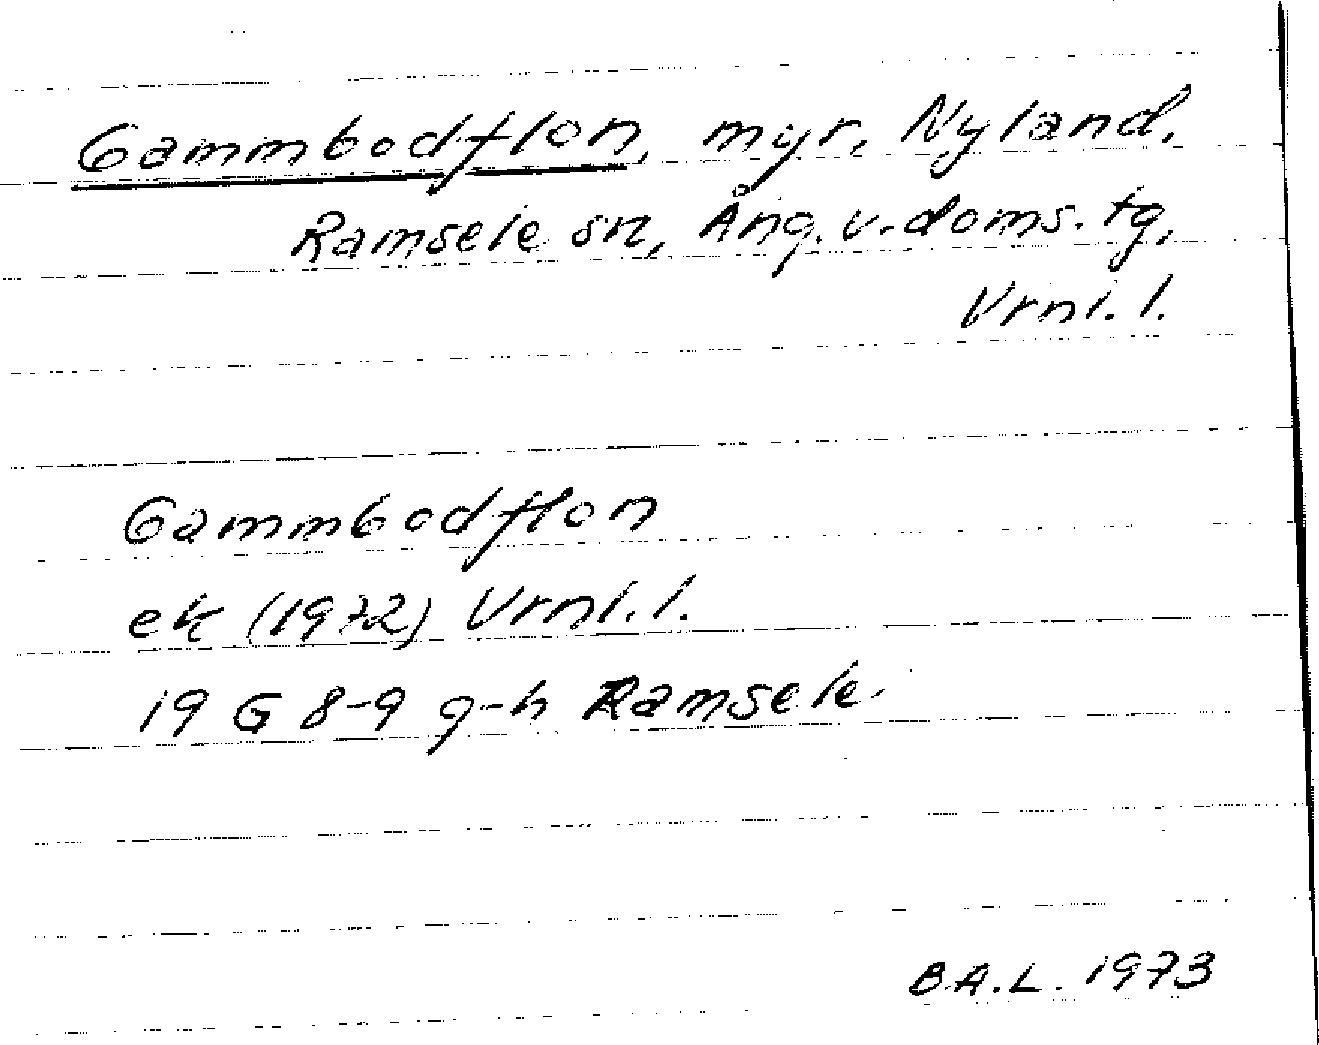 Gammbodflon, myr, Nyland,
Ramsele sn, Ång. v. doms. tg,
Vrnl. l.
Gammbodflon
ek (1972) Vrnl. l.
19 G 8-9 g-h Ramsele.
B.A.L. 1973